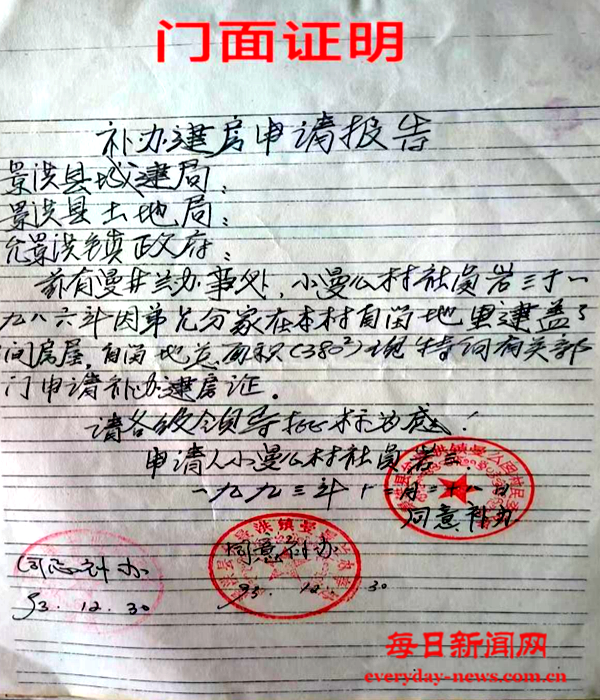 门面证明
补办建房申请报告
景洪县城建局：
景洪县土地局：
允景洪镇政府：
兹有曼井兰办事处，小曼么村社员岩三于一
九八六年因弟兄分家在本村自留地里建盖了
间房屋，自留地总面积(380²)现特向有关部
门申请补办建房证。
请各级领导批标为感！
申请人小曼么村社员岩三
一九九三年十一月二十一日
同意补办
同意补办
93.12.30
同意补办
93.12.30
每日新闻网
everyday-news.com.cn